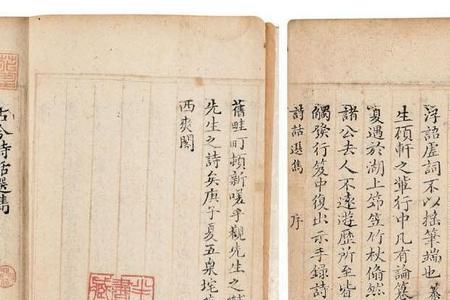 浮諂虛詞不以搖筆端也
生碩軒之輩行中凡有論
夏遇於湖上笻笠竹杖翛然
諸公去人不遠遊歷所至皆
觸發行笈中復出示手錄詩
詩話選雋 序
舊畦町頓新暖乎觀先生之
先生之詩矣庚子夏五臬垞
西爽閣
古今詩話選雋